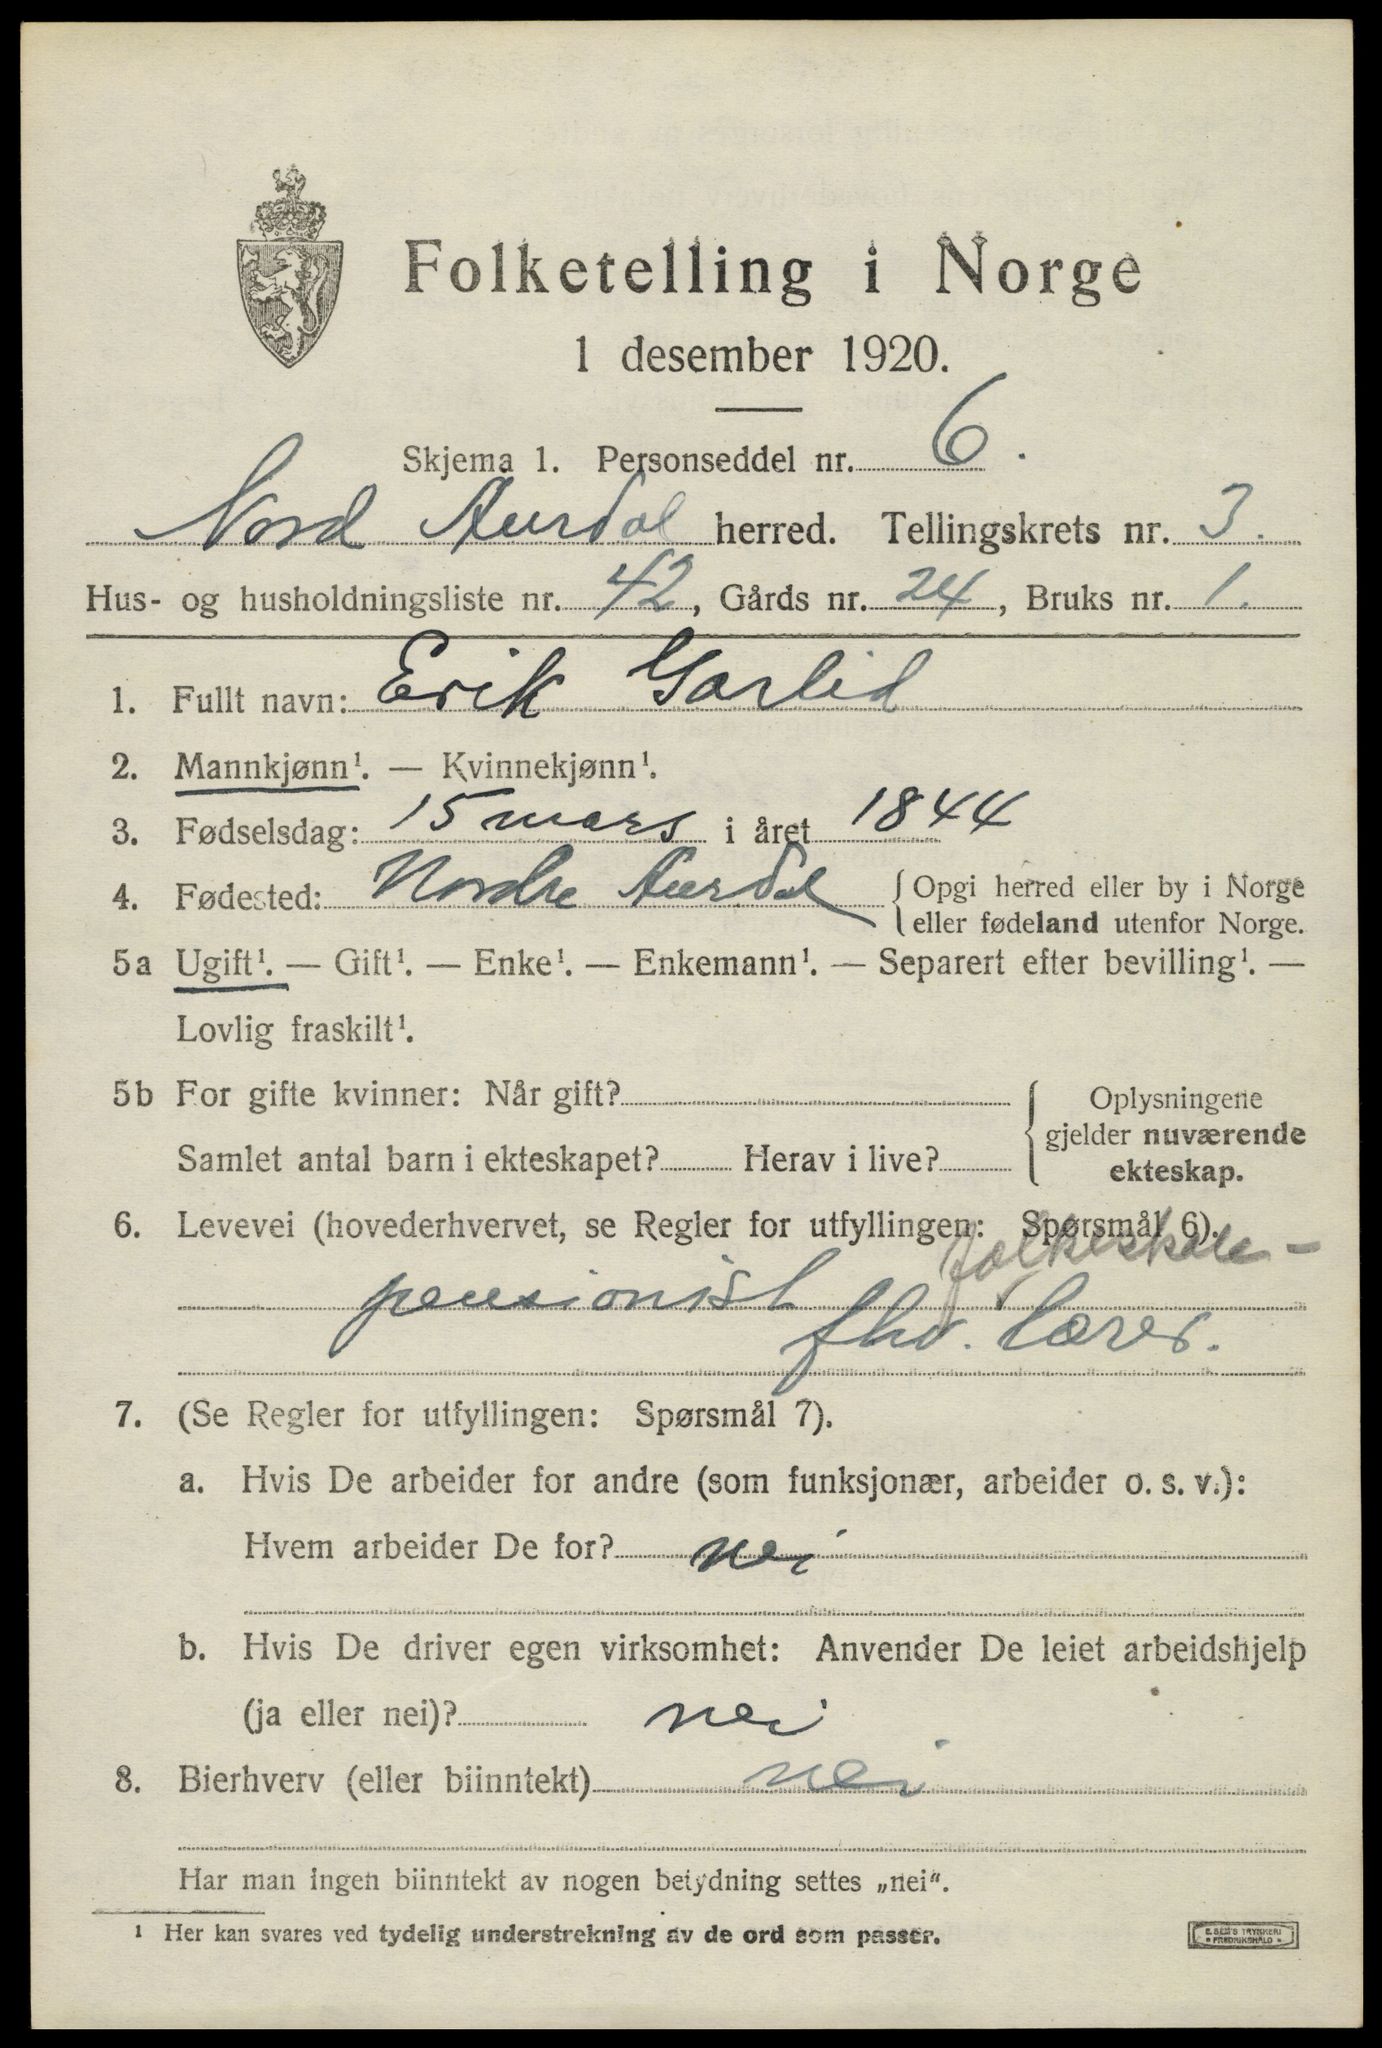 Folketelling i Norge
1 desember 1920.
Skjema 1. Personseddel nr. 6.
Nord Aurdal herred. Tellingskrets nr. 3.
Hus- og husholdningsliste nr. 42, Gårds nr. 24, Bruks nr. 1.
1. Fullt navn: Erik Garlid
2. Mannkjønn¹. — Kvinnekjønn¹.
3. Fødselsdag: 15 mars i året 1844
4. Fødested: Nordre Aurdal { Opgi herred eller by i Norge
eller fødeland utenfor Norge.
5a Ugift¹. — Gift¹. — Enke¹. — Enkemann¹. — Separert efter bevilling¹. —
Lovlig fraskilt¹.
5b For gifte kvinner: Når gift? { Oplysningene
gjelder nuværende
Samlet antal barn i ekteskapet? Herav i live?
ekteskap.
6. Levevei (hovederhvervet, se Regler for utfyllingen: Spørsmål 6).
folkeskole-
pensionist
fhv. lærer.
7. (Se Regler for utfyllingen: Spørsmål 7).
a. Hvis De arbeider for andre (som funksjonær, arbeider o. s. v.):
Hvem arbeider De for? nei
b. Hvis De driver egen virksomhet: Anvender De leiet arbeidshjelp
(ja eller nei)? nei
8. Bierhverv (eller biinntekt) nei
Har man ingen biinntekt av nogen betydning settes „nei“.
¹ Her kan svares ved tydelig understrekning av de ord som passer.
E. SEM'S TRYKKERI
FREDRIKSHALD